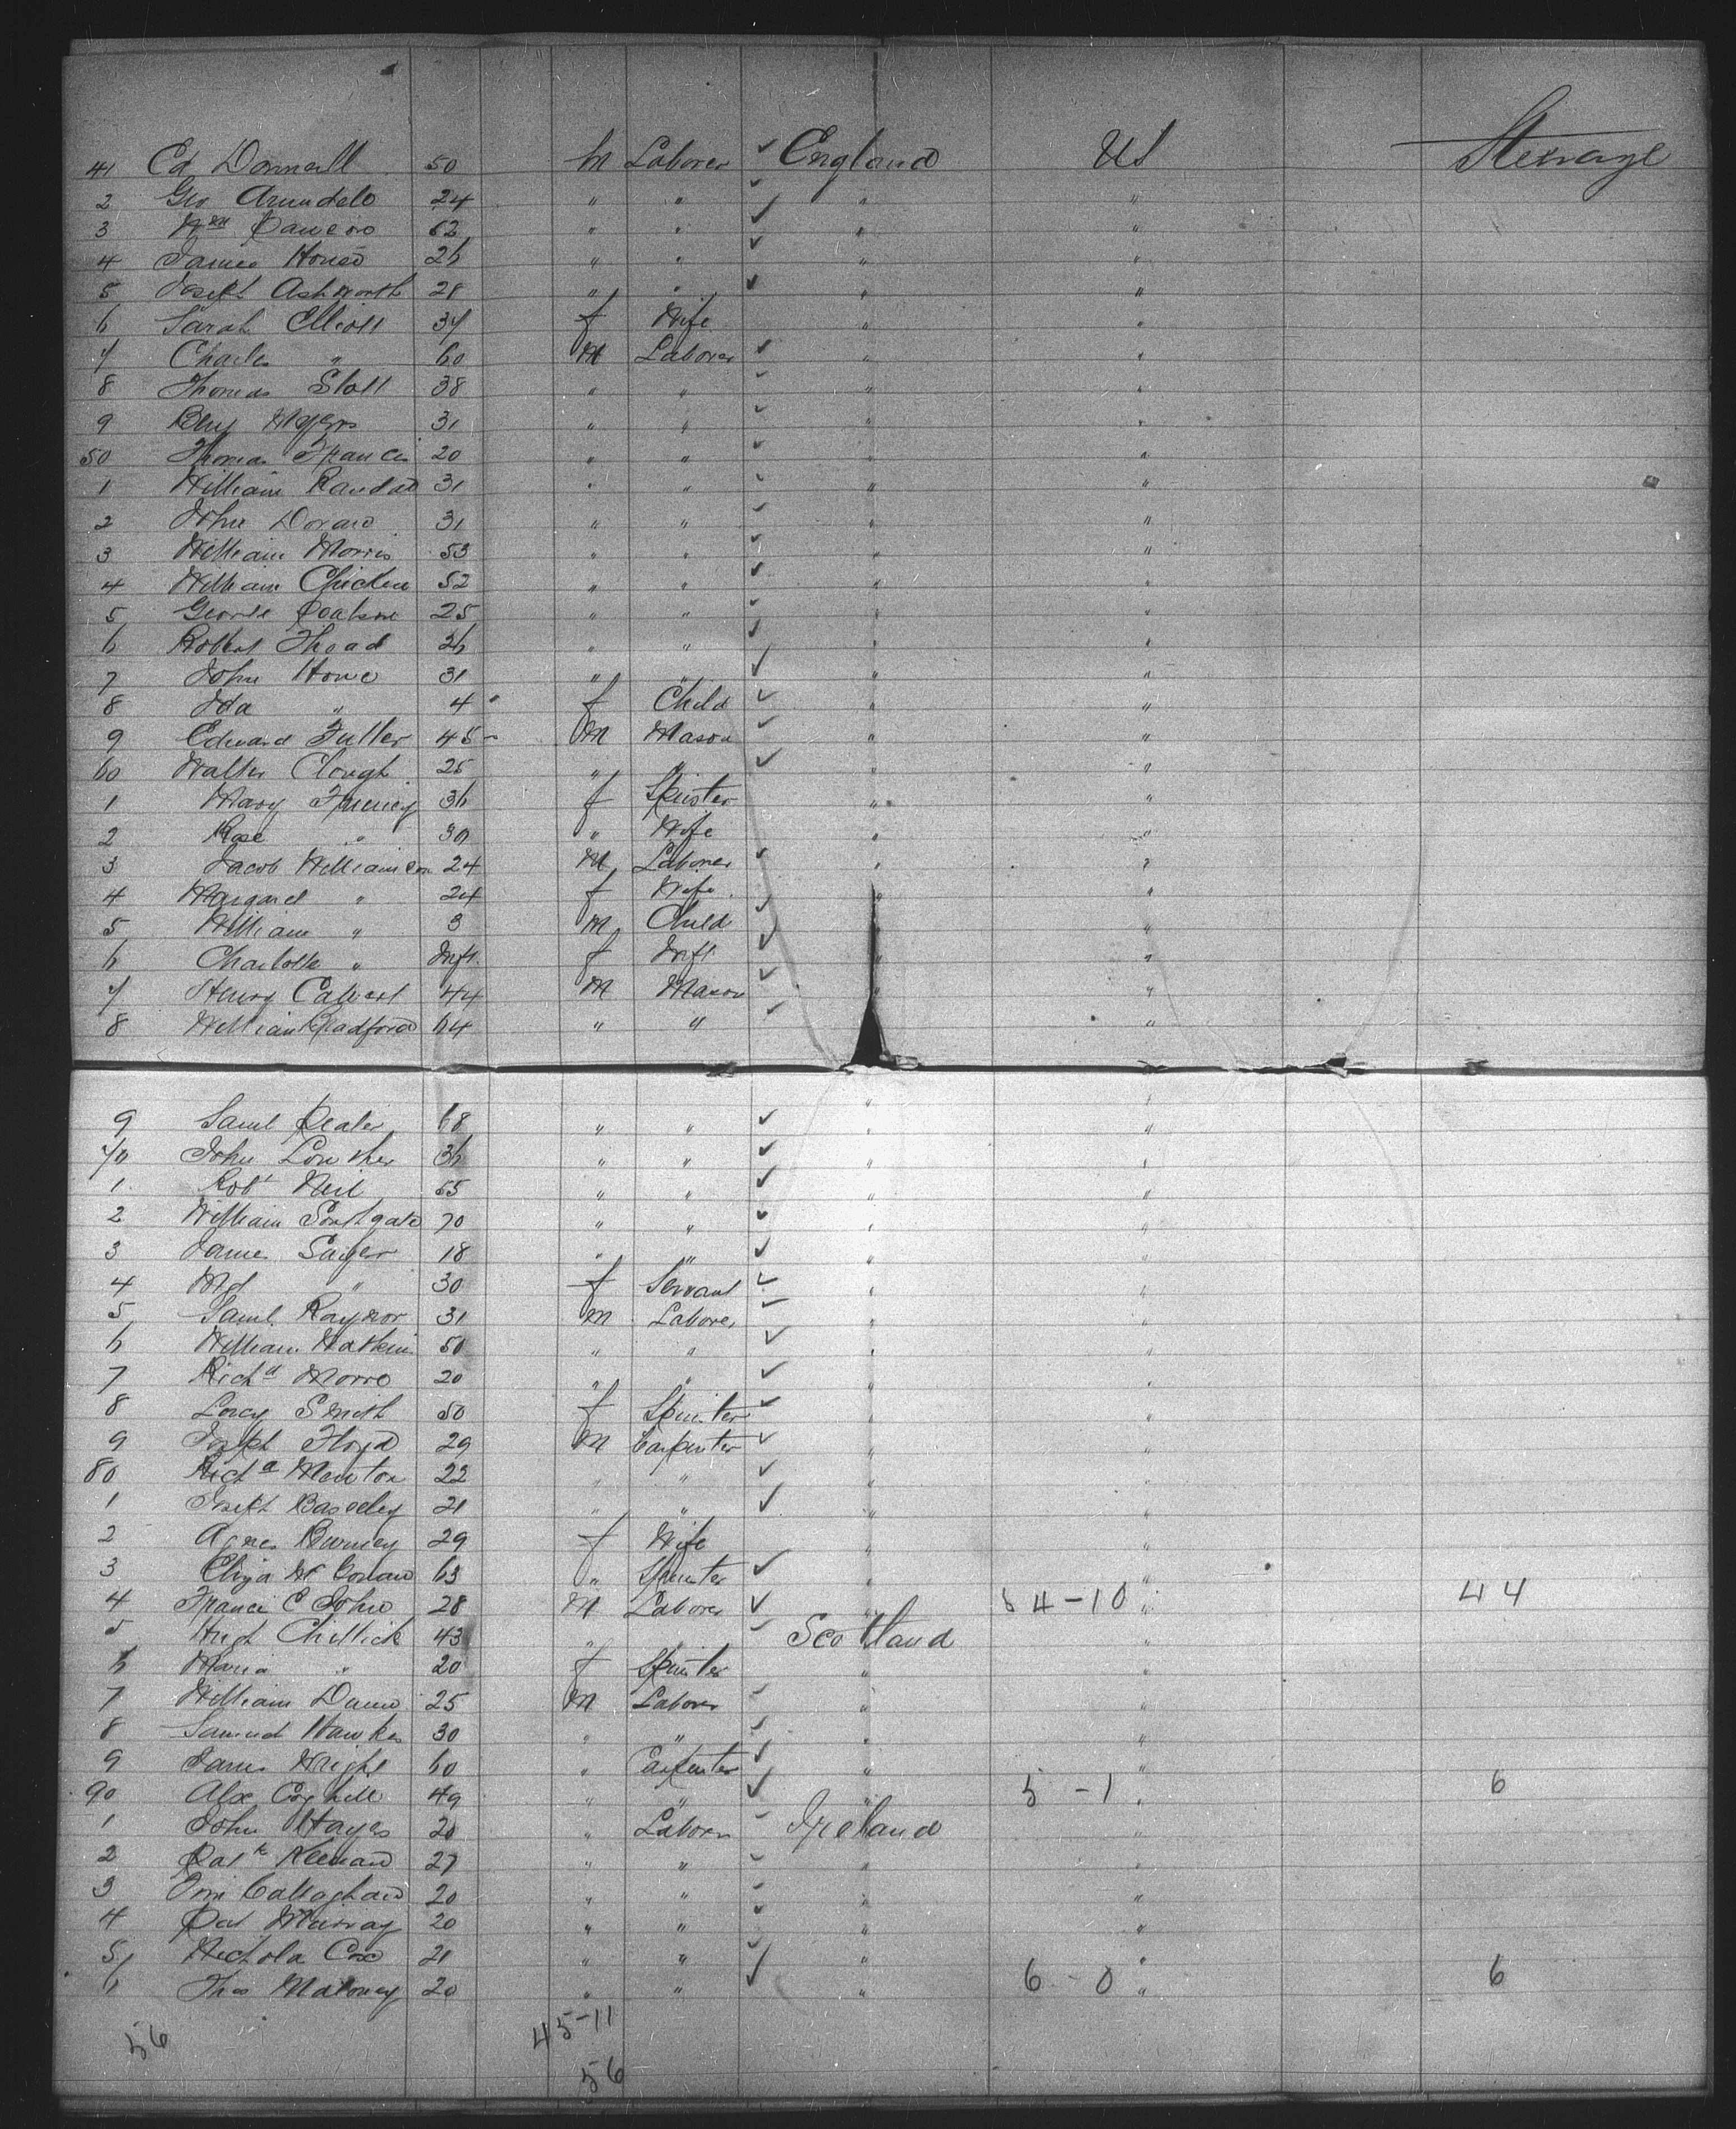 41 Ed Donnell 50 M Laborer ✓ England US Steerage
2 Geo Arundele 24 " " ✓ " "
3 Wm 62 " " ✓ " "
4 James House 26 " " ✓ " "
5 Joseph Ashworth 28 " " ✓ " "
6 Sarah Elliott 34 f Wife " "
7 Charles " 60 M Laborer ✓ " "
8 Thomas Stott 38 " " ✓ " "
9 Benj Myers 31 " " ✓ " "
50 Thomas Francis 20 " " ✓ " "
1 William Randal 31 " " ✓ " "
2 John Doran 31 " " ✓ " "
3 William Morris 53 " " ✓ " "
4 William Chicken 52 " " ✓ " "
5 George 25 " " ✓ " "
6 Robert Thoad 26 " " ✓ " "
7 John Howe 31 " " ✓ " "
8 Ida " 4 f Child ✓ " "
9 Edward Fuller 45 M Mason ✓ " "
60 Walter Clough 25 " " ✓ " "
1 Mary 36 f Spinster " "
2 Rose " 30 " Wife " "
3 Jacob Williamson 24 M Laborer ✓ " "
4 Margaret " 24 f Wife " "
5 William " 3 M Child ✓ " "
6 Charlotte " Inft. f Inft ✓ " "
7 Henry Calvert 44 M Mason ✓ " "
8 William Bradford 64 " " ✓ "
9 Saml 68 " " ✓ " "
70 John Lowther 36 " " ✓ " "
1 Robt Neil 65 " " ✓ " "
2 William Southgate 70 " " ✓ " "
3 James Sayer 18 " " ✓ " "
4 " 30 f Servant ✓ " "
5 Saml. Raynor 31 M Laborer ✓ " "
6 William Watkins 50 " " ✓ " "
7 Richd Morro 20 " " ✓ " "
8 Lucy Smith 50 f Spinster ✓ " "
9 Joseph Floyd 29 M Carpenter ✓ " "
80 Richd Newton 22 " " ✓ " "
1 Joseph Baseley 21 " " ✓ " "
2 Agnes 29 f Wife " "
3 Eliza 63 " Spinster ✓ " "
4 Francis C John 28 M Laborer ✓ " 34-10 " 44
5 Hugh Chillick 43 " " ✓ Scotland "
6 Maria " 20 f Spinster " "
7 William Dunn 25 M Laborer ✓ " "
8 Samuel Hawkes 30 " " ✓ " "
9 James Wright 60 " Carpenter ✓ " "
90 Alex Coghill 49 " " ✓ " 5-1 " 6
1 John Hayes 20 " Laborer ✓ Ireland "
2 Patk Keenan 27 " " ✓ " "
3 Callaghan 20 " " ✓ " "
4 Pat Murray 20 " " ✓ " "
5 Nichola Cox 21 " " ✓ " "
6 Thos Maloney 20 " " ✓ " 6-0 " 6
56 45-11
56